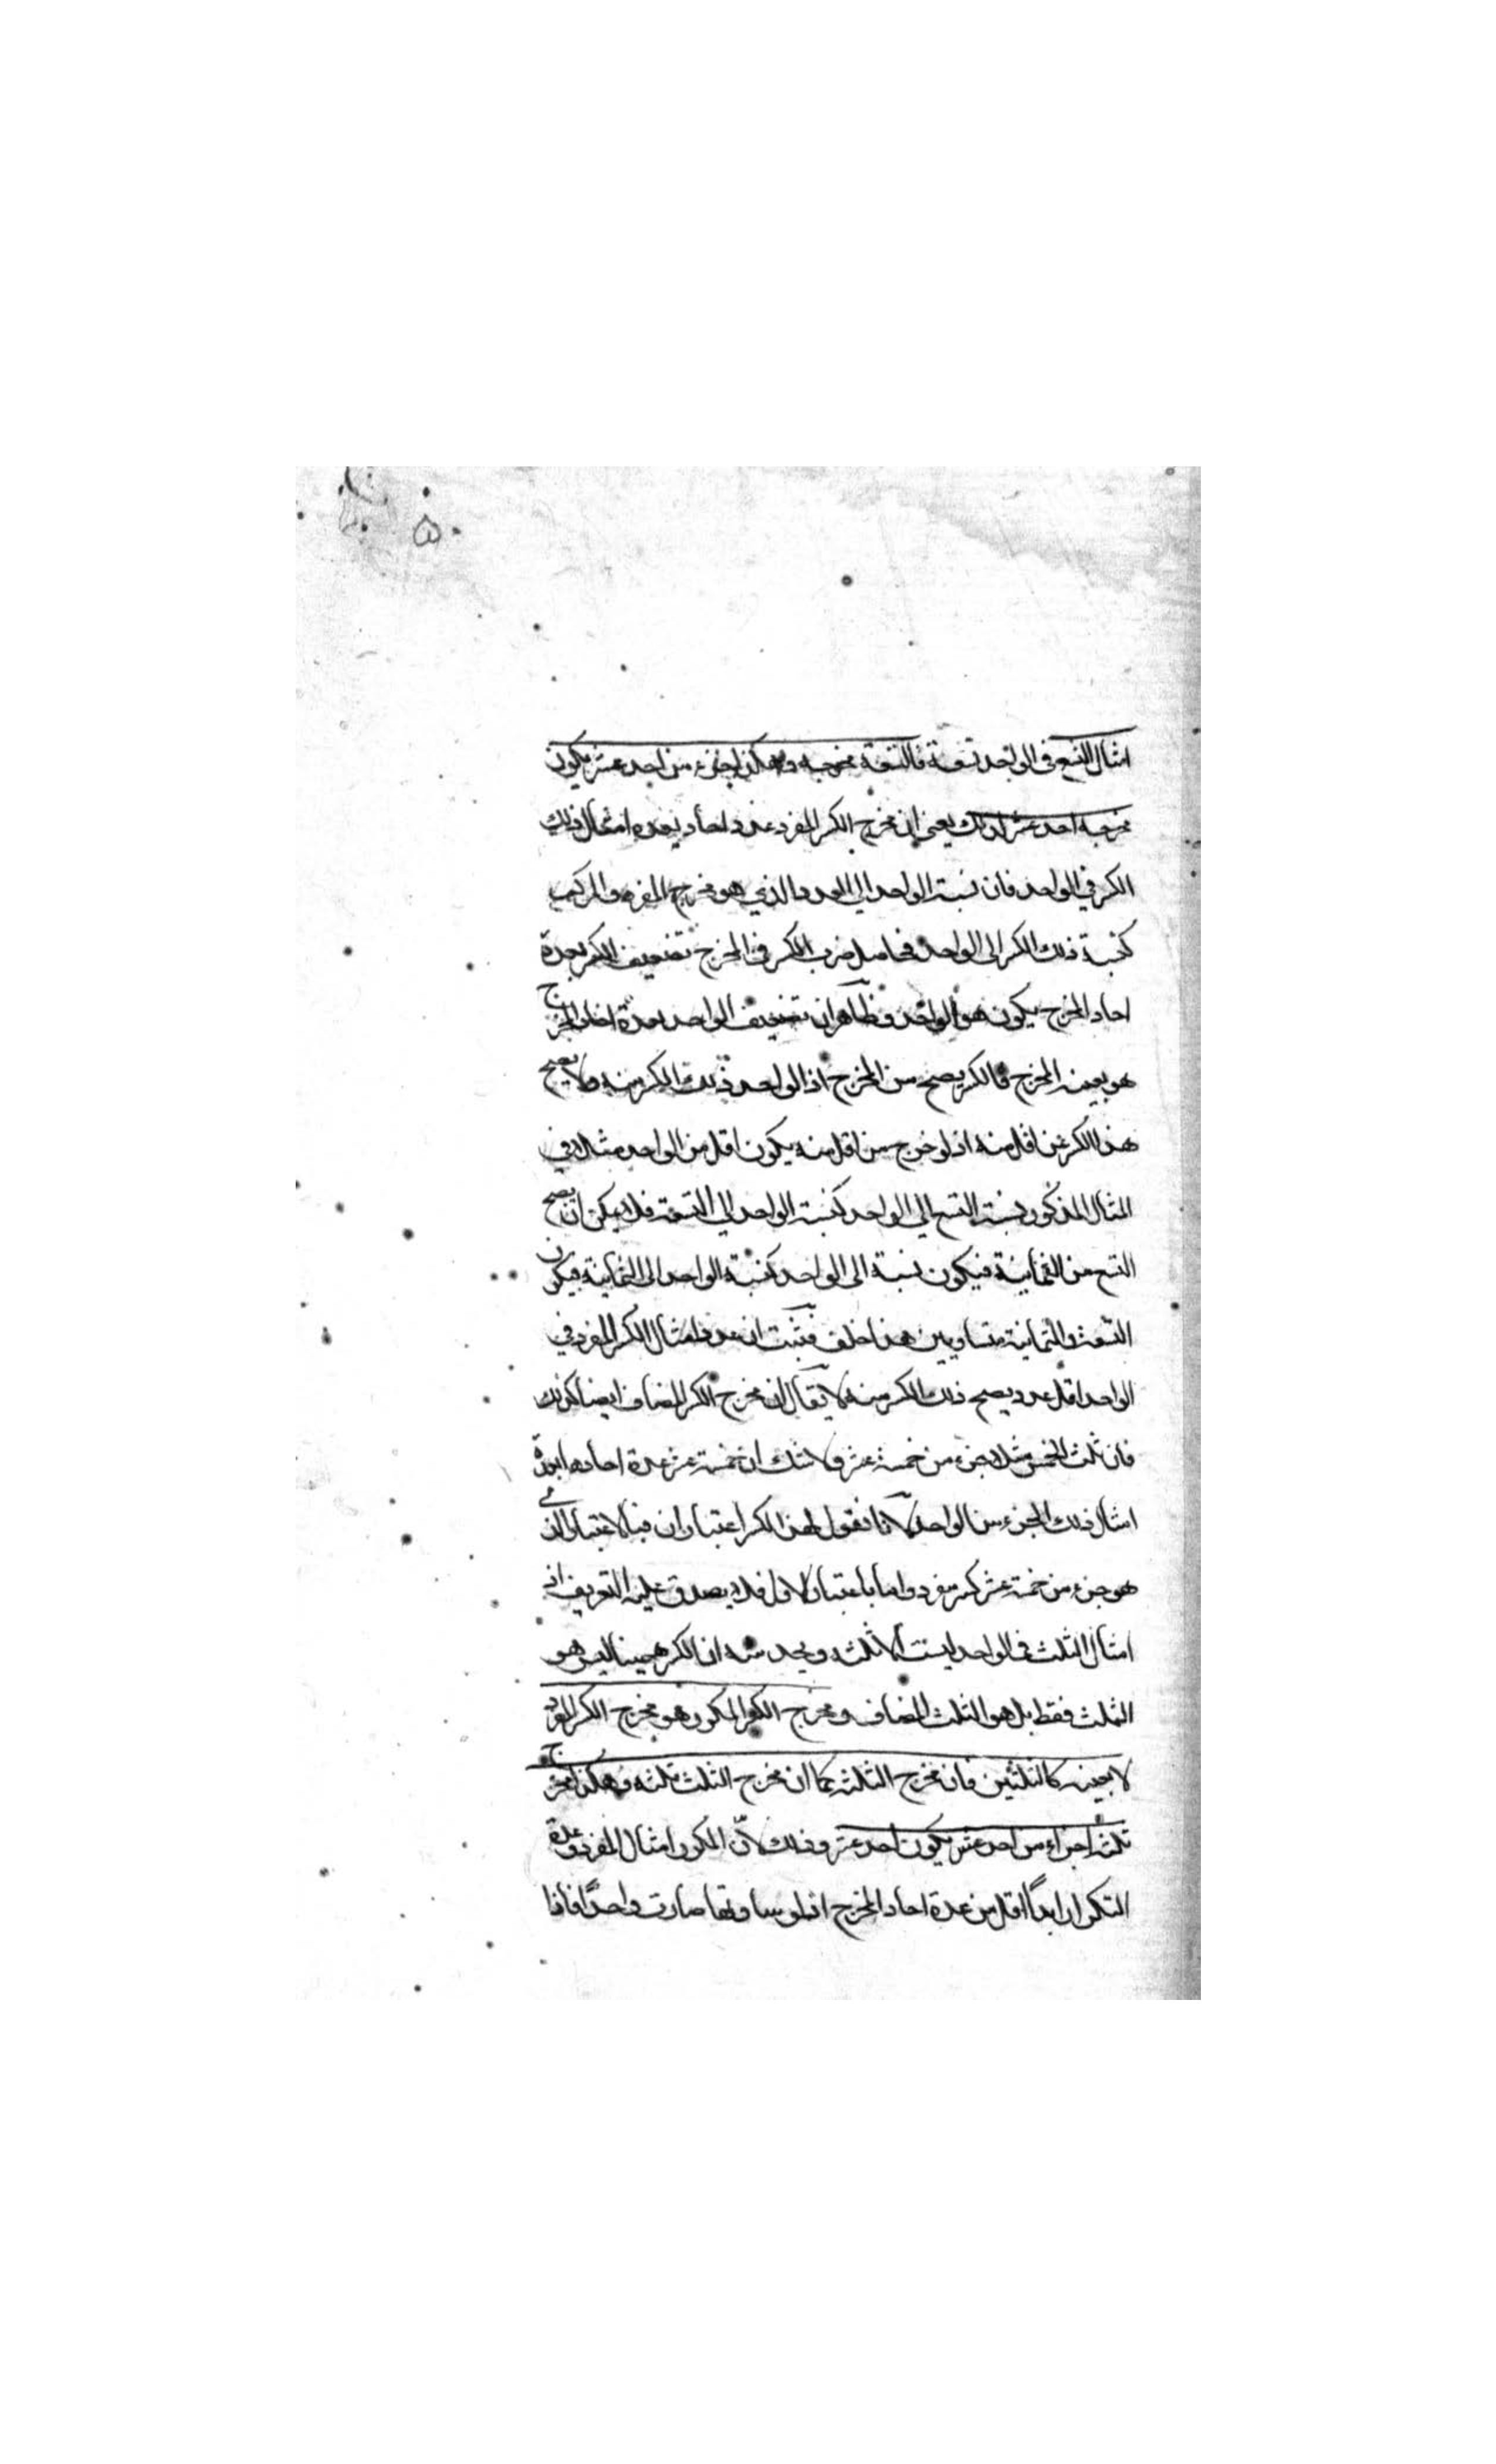 امثال التسع فى الواحد تسعة فالتسعة مخرجه وهكذا جزء من احد عشر يكون
مخرجه احد عشر لذلك يعنى ان مخرج الكسر المفرد عدد احاد بعدة امثال ذلك
الكسر في الواحد فان نسبة الواحد الى العدد الذي هو مخرج المفرد والمركب
كنسبة ذلك الكسر الى الواحد فحاصل ضرب الكسر فى المخرج تضعيف الكسر بعدة
احاد المخرج يكون هو الواحد وظاهر ان تضعيف الواحد بعدة احاد المخرج
هو بعينه المخرج فالكسر يصح من المخرج اذ الواحد ذلك الكسر منه ولا يصح
هذا الكسر من اقل منه اذ لو خرج من اقل منه يكون اقل من الواحد مثلا في
المثال المذكور نسبة التسع الي الواحد كنسبة الواحد الي التسعة فلا يمكن ان يصح
التسع من الثمانية فيكون نسبة الى الواحد كنسبة الواحد الى الثمانية فيكون
التسعة والثمانية متساويين هذا خلف فثبت ان عدد امثال الكسر المفرد في
الواحد اقل عدد يصح ذلك الكسر منه لا يقال ان مخرج الكسر المضاف ايضا كذلك
فان ثلث الخمس مثلا جزء من خمسة عشر ولا شك ان خمسة عشر عدة احادها بعدة
امثال ذلك الجزء من الواحد لانا نقول لهذا الكسر اعتباران فبالاعتبار الذي
هو جزء من خمسة عشر كسر مفرد واما باعتبار الاول فلا يصدق عليه التعريف اذ
امثال الثلث فى الواحد ليست الا ثلثه ويخدشه ان الكسر ههنا ليس هو
الثلث فقط بل هو الثلث المضاف ومخرج الكسر المكرر هو مخرج الكسر المفرد
لا بعينه كالثلثين فان مخرج الثلثه كما ان مخرج الثلث ثلثه وهكذا مخرج
ثلثه اجزاء من احد عشر يكون احد عشر وذلك لان المكرر امثال المفرد وعدة
التكرار ابداً اقل من عدة احاد المخرج اذ لو ساوتها صارت واحداً فاذا